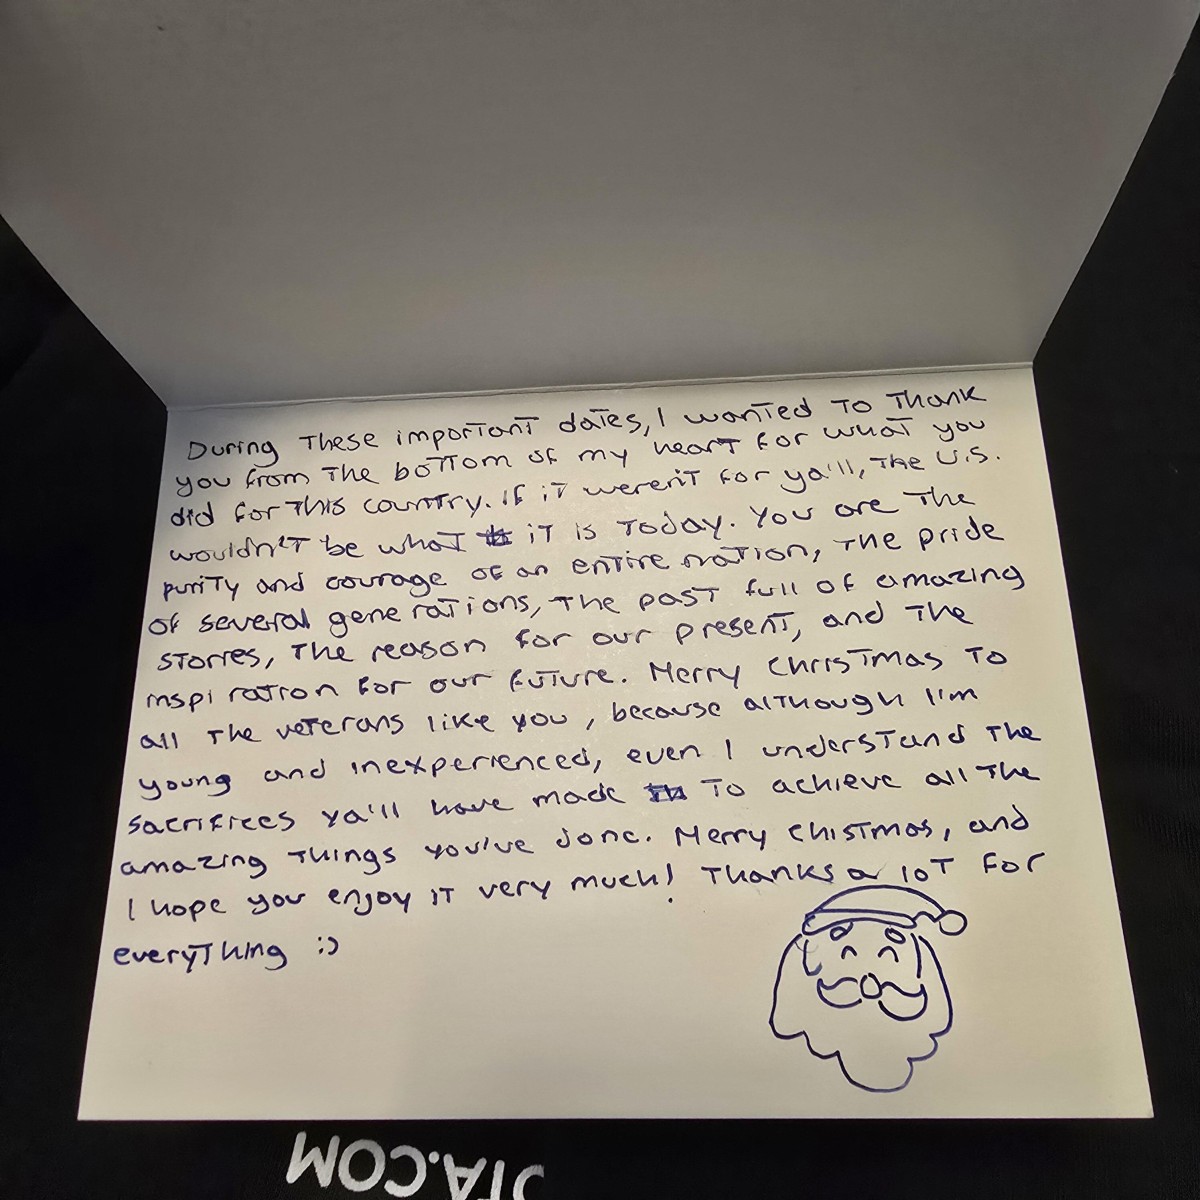 During these important dates, I wanted to thank
you from the bottom of my heart for what you
did for this country. If it weren't for ya'll, the U.S.
wouldn't be what it is today. You are the
purity and courage of an entire nation, the pride
of several generations, the past full of amazing
stories, the reason for our present, and the
inspiration for our future. Merry Christmas to
all the veterans like you, because although I'm
young and inexperienced, even I understand the
sacrifices ya'll have made to achieve all the
amazing things you've done. Merry Chistmas, and
I hope you enjoy it very much! Thanks a lot for
everything :)
JTA.COM